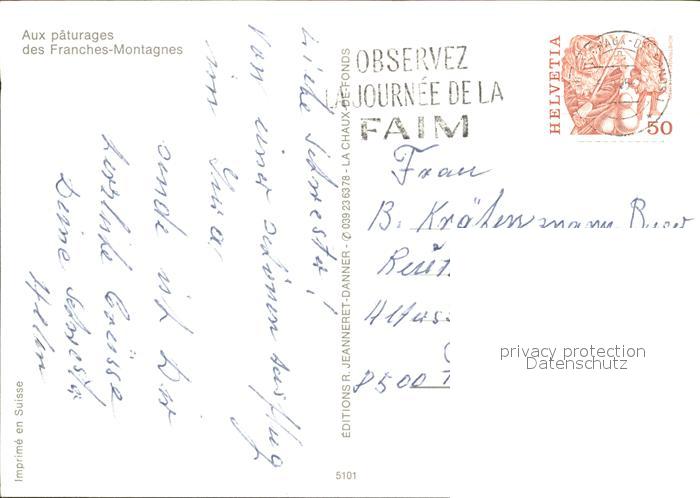 Aux pâturages
des Franches-Montagnes
OBSERVEZ
LA JOURNÉE DE LA
FAIM
HELVETIA
50
Liebe Schwester!
Von einer schönen Ausflug
im Jura
sende ich Dir
herzliche Grüsse
Deine Schwester
Frau
B. Krähenmann
8500
ÉDITIONS R. JEANNERET-DANNER - ✆ 039 23 63 78 - LA CHAUX-DE-FONDS
Imprimé en Suisse
5101
privacy protection
Datenschutz